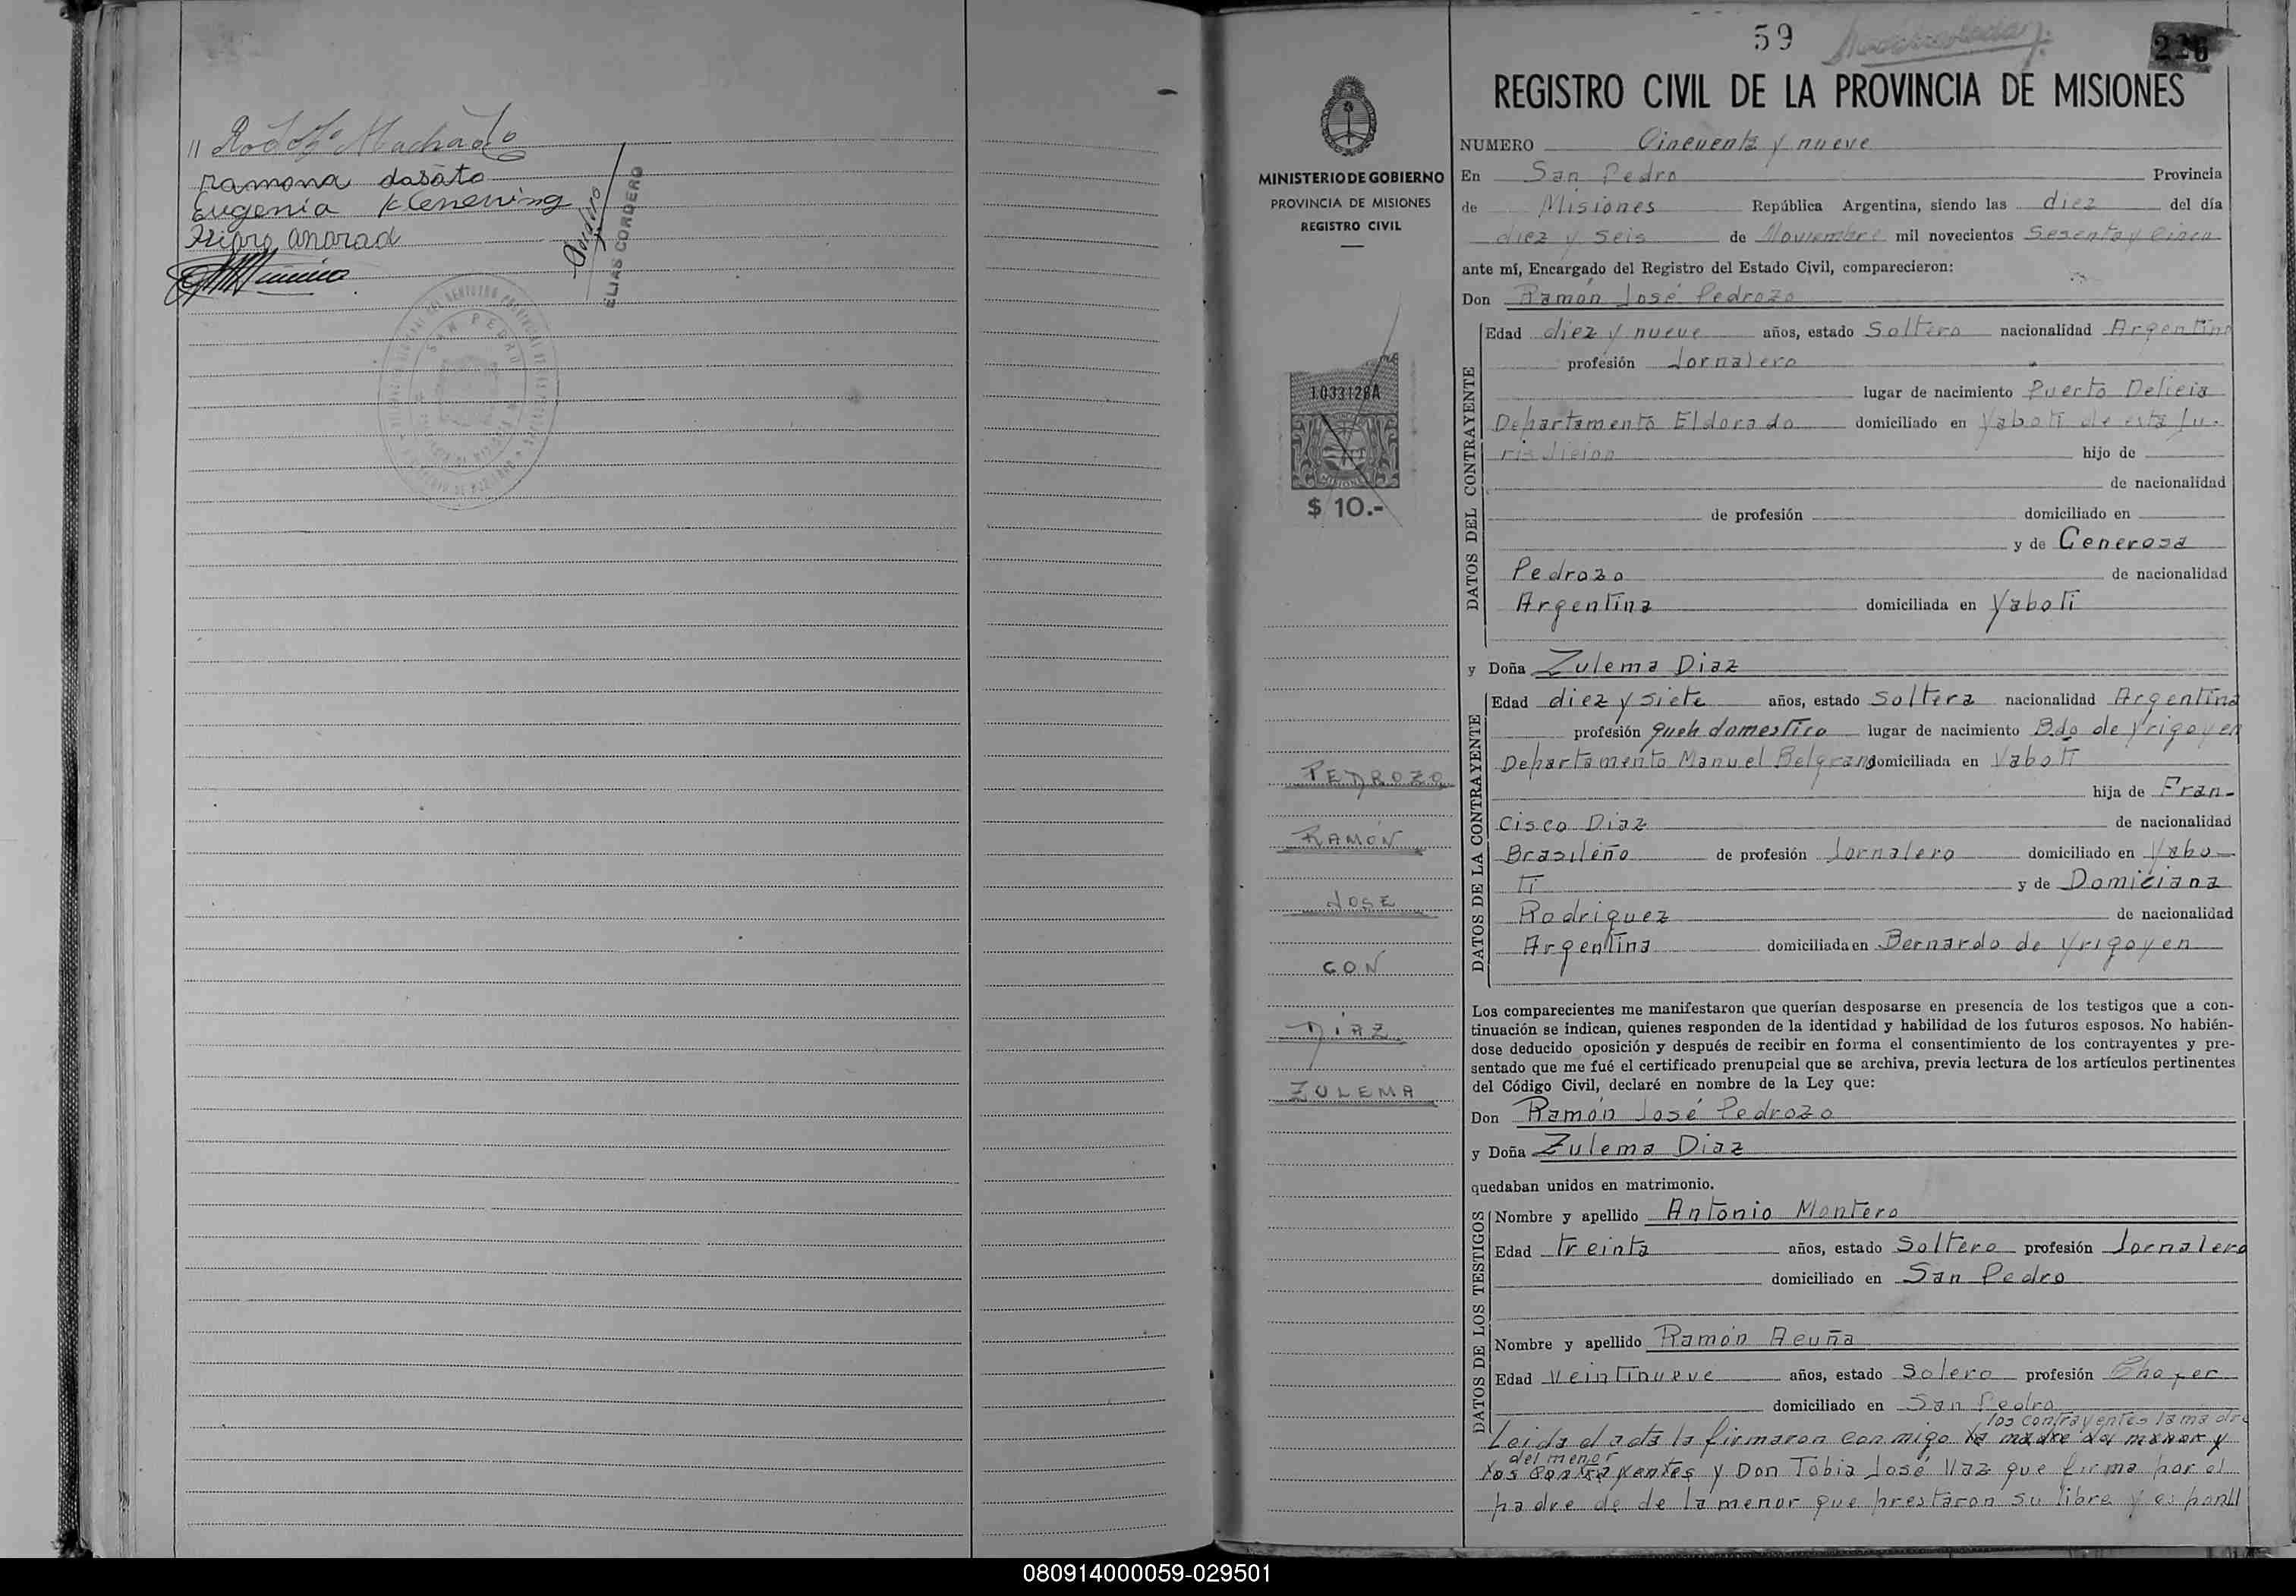 " Rodolfo Machado
ramona dosato
Eugenia Klenening
Andrad
Cordero
ELIAS CORDERO
SAN PEDRO
59
226
REGISTRO CIVIL DE LA PROVINCIA DE MISIONES
MINISTERIO DE GOBIERNO
PROVINCIA DE MISIONES
REGISTRO CIVIL
1033128A
MISIONES
$ 10.-
PEDROZO
RAMÓN
JOSE
CON
DIAZ
ZULEMA
NUMERO Cincuenta y nueve
En San Pedro Provincia
de Misiones República Argentina, siendo las diez del día
diez y seis de Noviembre mil novecientos Sesenta y Cinco
ante mí, Encargado del Registro del Estado Civil, comparecieron:
Don Ramón José Pedrozo
DATOS DEL CONTRAYENTE
Edad diez y nueve años, estado Soltero nacionalidad Argentino
profesión Jornalero
lugar de nacimiento Puerto Delicia
Departamento Eldorado domiciliado en Yaboti de esta Ju-
risdicion hijo de
de nacionalidad
de profesión domiciliado en
y de Generosa
Pedrozo de nacionalidad
Argentina domiciliada en Yaboti
y Doña Zulema Diaz
DATOS DE LA CONTRAYENTE
Edad diez y siete años, estado Soltera nacionalidad Argentina
profesión queh domestico lugar de nacimiento Bdo de Yrigoyen
Departamento Manuel Belgrano domiciliada en Yaboti
hija de Fran-
cisco Diaz de nacionalidad
Brasileño de profesión Jornalero domiciliado en Yabo-
ti y de Domiciana
Rodriguez de nacionalidad
Argentina domiciliada en Bernardo de Yrigoyen
Los comparecientes me manifestaron que querían desposarse en presencia de los testigos que a con-
tinuación se indican, quienes responden de la identidad y habilidad de los futuros esposos. No habién-
dose deducido oposición y después de recibir en forma el consentimiento de los contrayentes y pre-
sentado que me fué el certificado prenupcial que se archiva, previa lectura de los artículos pertinentes
del Código Civil, declaré en nombre de la Ley que:
Don Ramón José Pedrozo
y Doña Zulema Diaz
quedaban unidos en matrimonio.
DATOS DE LOS TESTIGOS
Nombre y apellido Antonio Montero
Edad treinta años, estado Soltero profesión Jornalero
domiciliado en San Pedro
Nombre y apellido Ramón Acuña
Edad Veintinueve años, estado Solero profesión Chofer
domiciliado en San Pedro
los contrayentes la madre
Leida el acta la firmaron conmigo la madre del menor y
del menor
los Contrayentes y Don Tobia José Vaz que firma por el
padre de de la menor que prestaron su libre y espont//
080914000059-029501